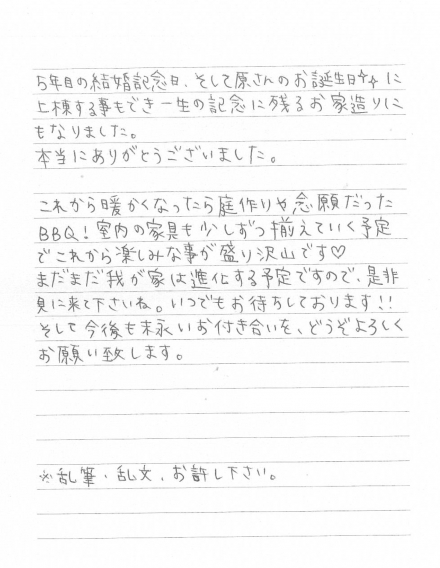 5年目の結婚記念日、そして原さんのお誕生日✨に
上棟する事もでき一生の記念に残るお家造りに
もなりました。
本当にありがとうございました。
これから暖かくなったら庭作りや念願だった
BBQ!室内の家具も少しずつ揃えていく予定
でこれから楽しみな事が盛り沢山です♡
まだまだ我が家は進化する予定ですので、是非
見に来て下さいね。いつでもお待ちしております!!
そして今後も末永いお付き合いを、どうぞよろしく
お願い致します。
※乱筆・乱文、お許し下さい。